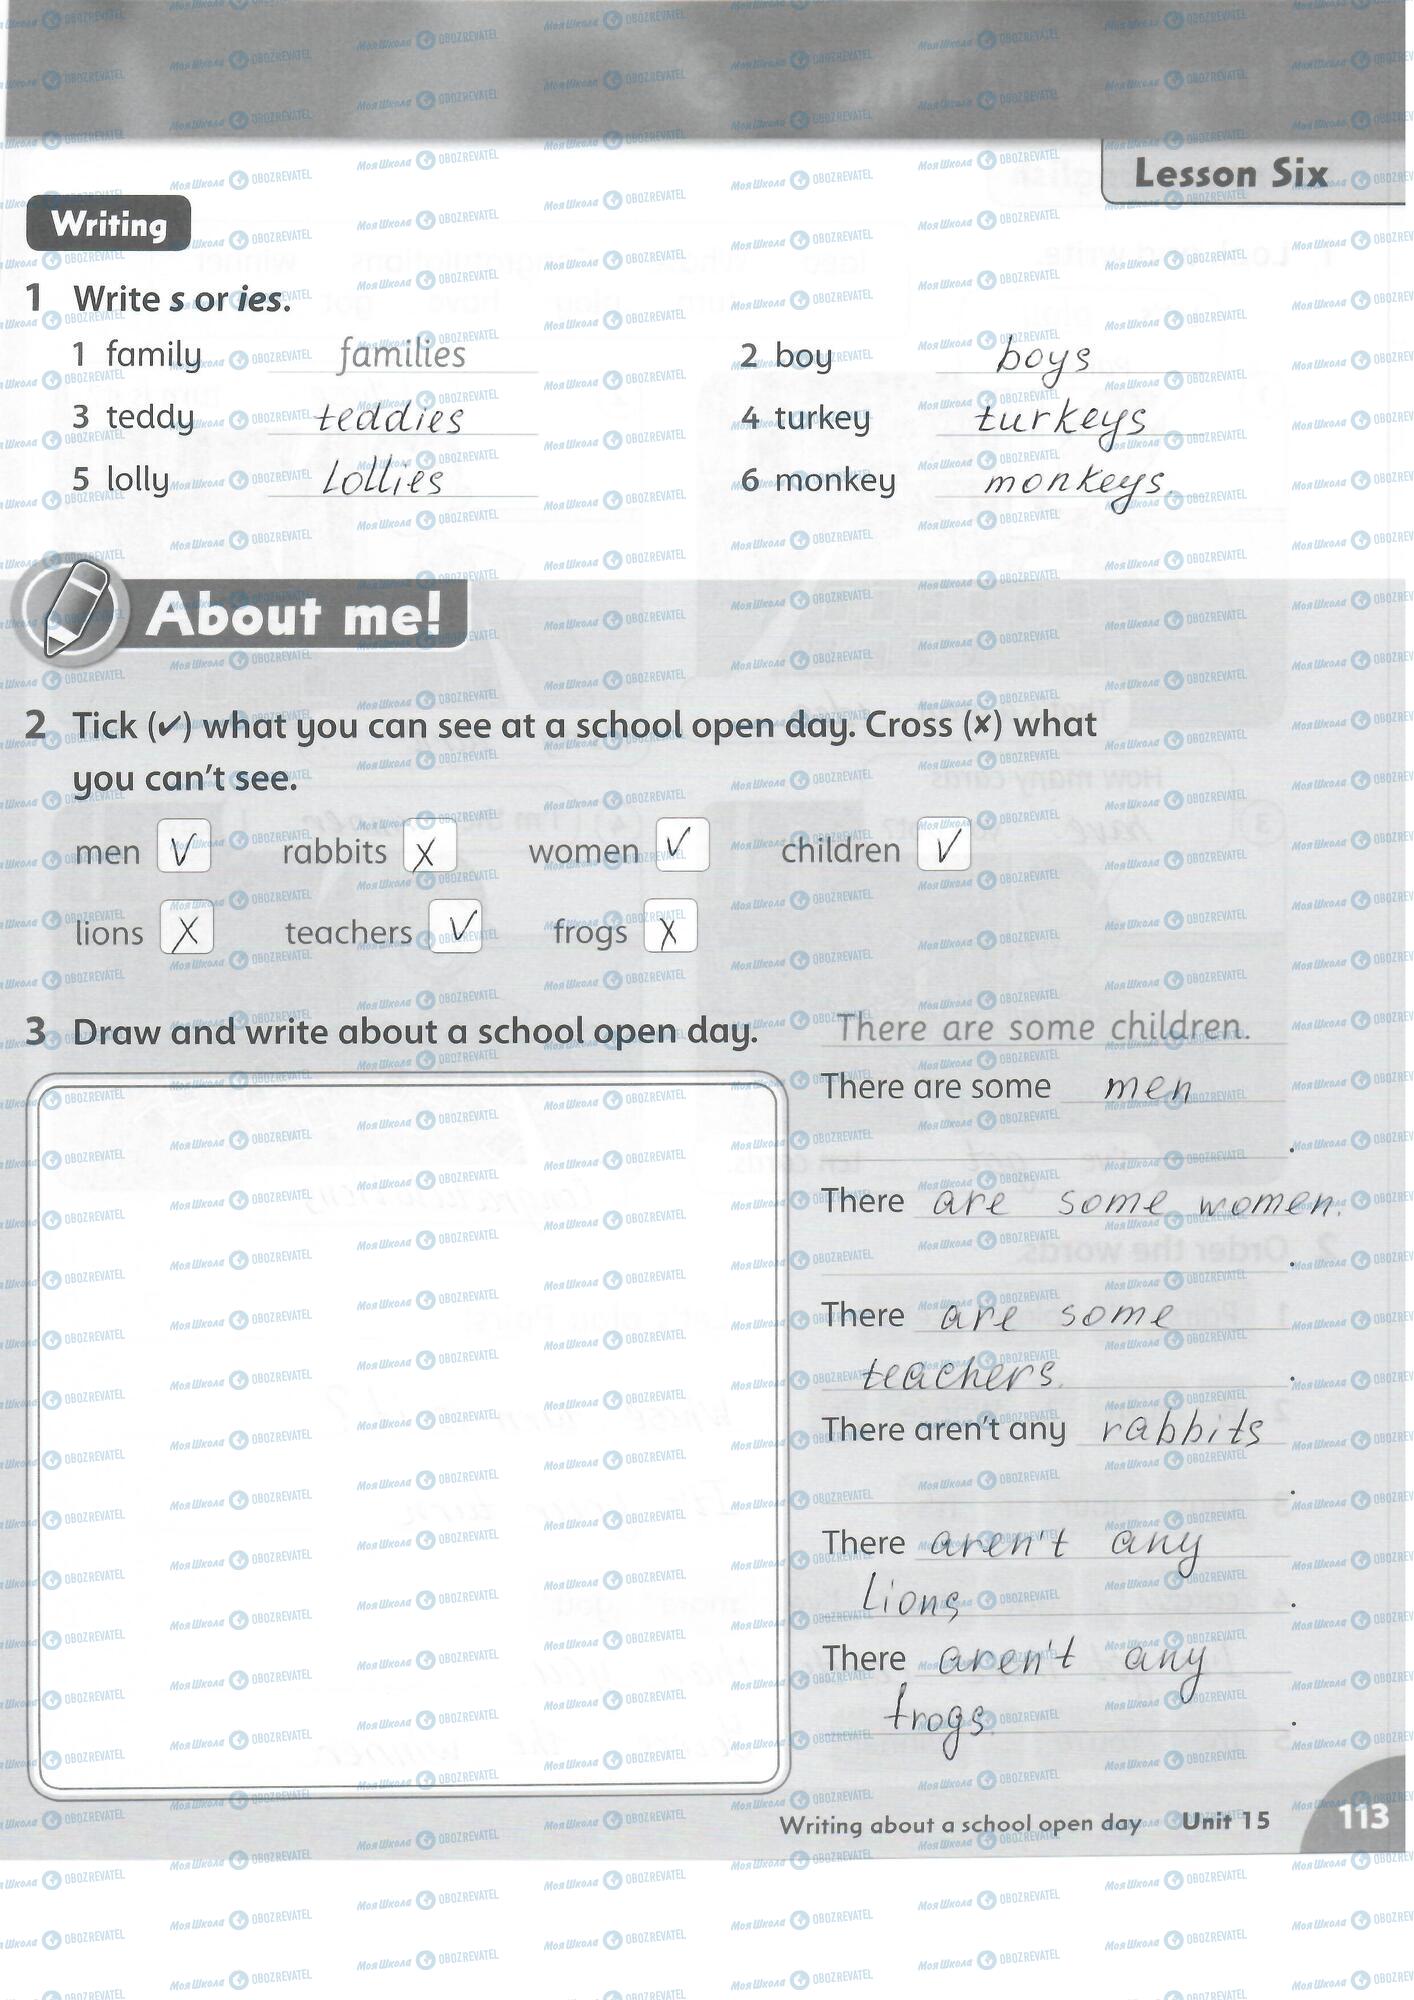 Lesson Six
Writing
1 Write s or ies.
1 family families 2 boy boys
3 teddy teddies 4 turkey turkeys
5 lolly lollies 6 monkey monkeys.
About me!
2 Tick (✔) what you can see at a school open day. Cross (✘) what
you can't see.
men ✓ rabbits ✗ women ✓ children ✓
lions ✗ teachers ✓ frogs ✗
3 Draw and write about a school open day.
There are some children.
There are some men
.
There are some women.
.
There are some
teachers. .
There aren't any rabbits
.
There aren't any
lions .
There aren't any
frogs. .
Writing about a school open day Unit 15 113
МояШкола OBOZREVATEL